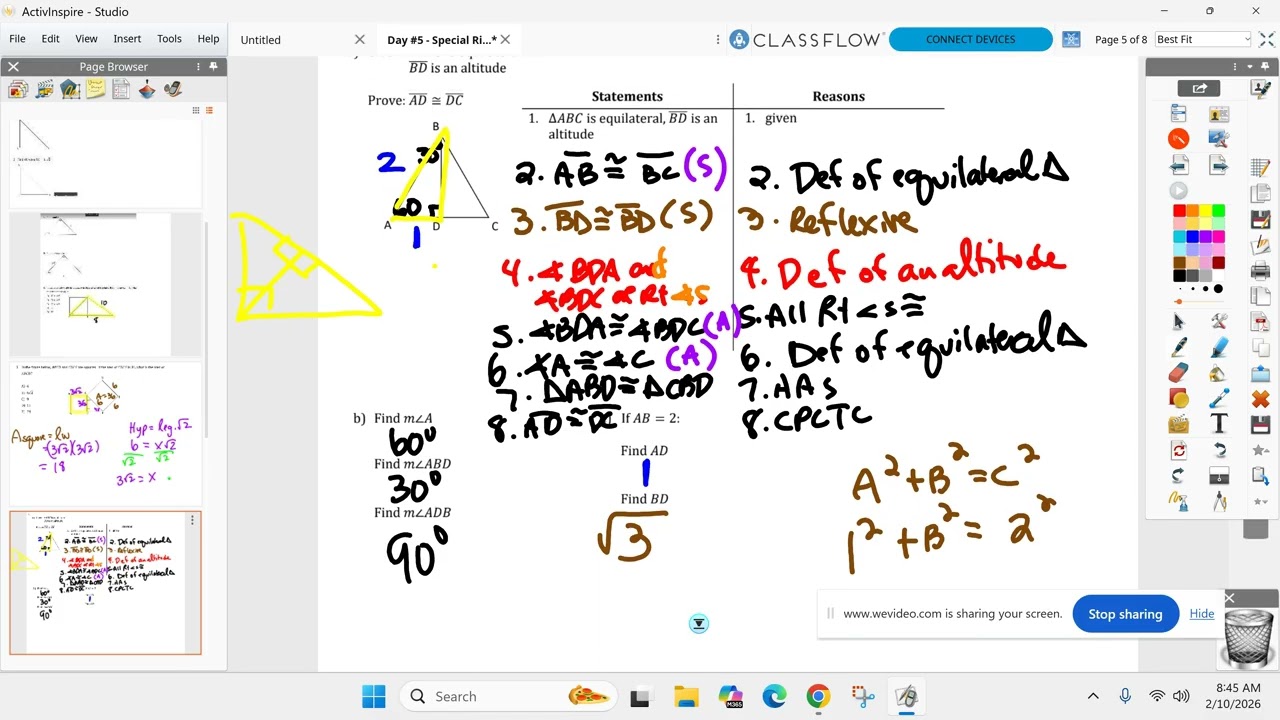 ActivInspire - Studio
File Edit View Insert Tools Help
Untitled
Day #5 - Special Ri...*
CLASSFLOW
CONNECT DEVICES
Page 5 of 8
Best Fit
Page Browser
BD is an altitude
Prove: AD ≅ DC
Statements
Reasons
1. ΔABC is equilateral, BD is an
altitude
1. given
B
2
30
60
A
D
C
1
2. AB ≅ BC (S)
2. Def of equilateral Δ
3. BD ≅ BD (S)
3. Reflexive
4. ∡BDA and
∡BDC ar Rt ∡s
4. Def of an altitude
5. ∡BDA ≅ ∡BDC (A)
5. All Rt <s ≅
6. ∡A ≅ ∡C (A)
6. Def of equilateral Δ
7. ΔABD ≅ ΔCBD
7. AAS
8. AD ≅ DC
8. CPCTC
b) Find m∠A
60°
Find m∠ABD
30°
Find m∠ADB
90°
If AB = 2:
Find AD
1
Find BD
√3
A² + B² = C²
1² + B² = 2²
Asquare = lw
= (3√2)(3√2)
= 18
Hyp = Leg·√2
6 = x√2
√2 √2
3√2 = x
www.wevideo.com is sharing your screen.
Stop sharing
Hide
Search
8:45 AM
2/10/2026